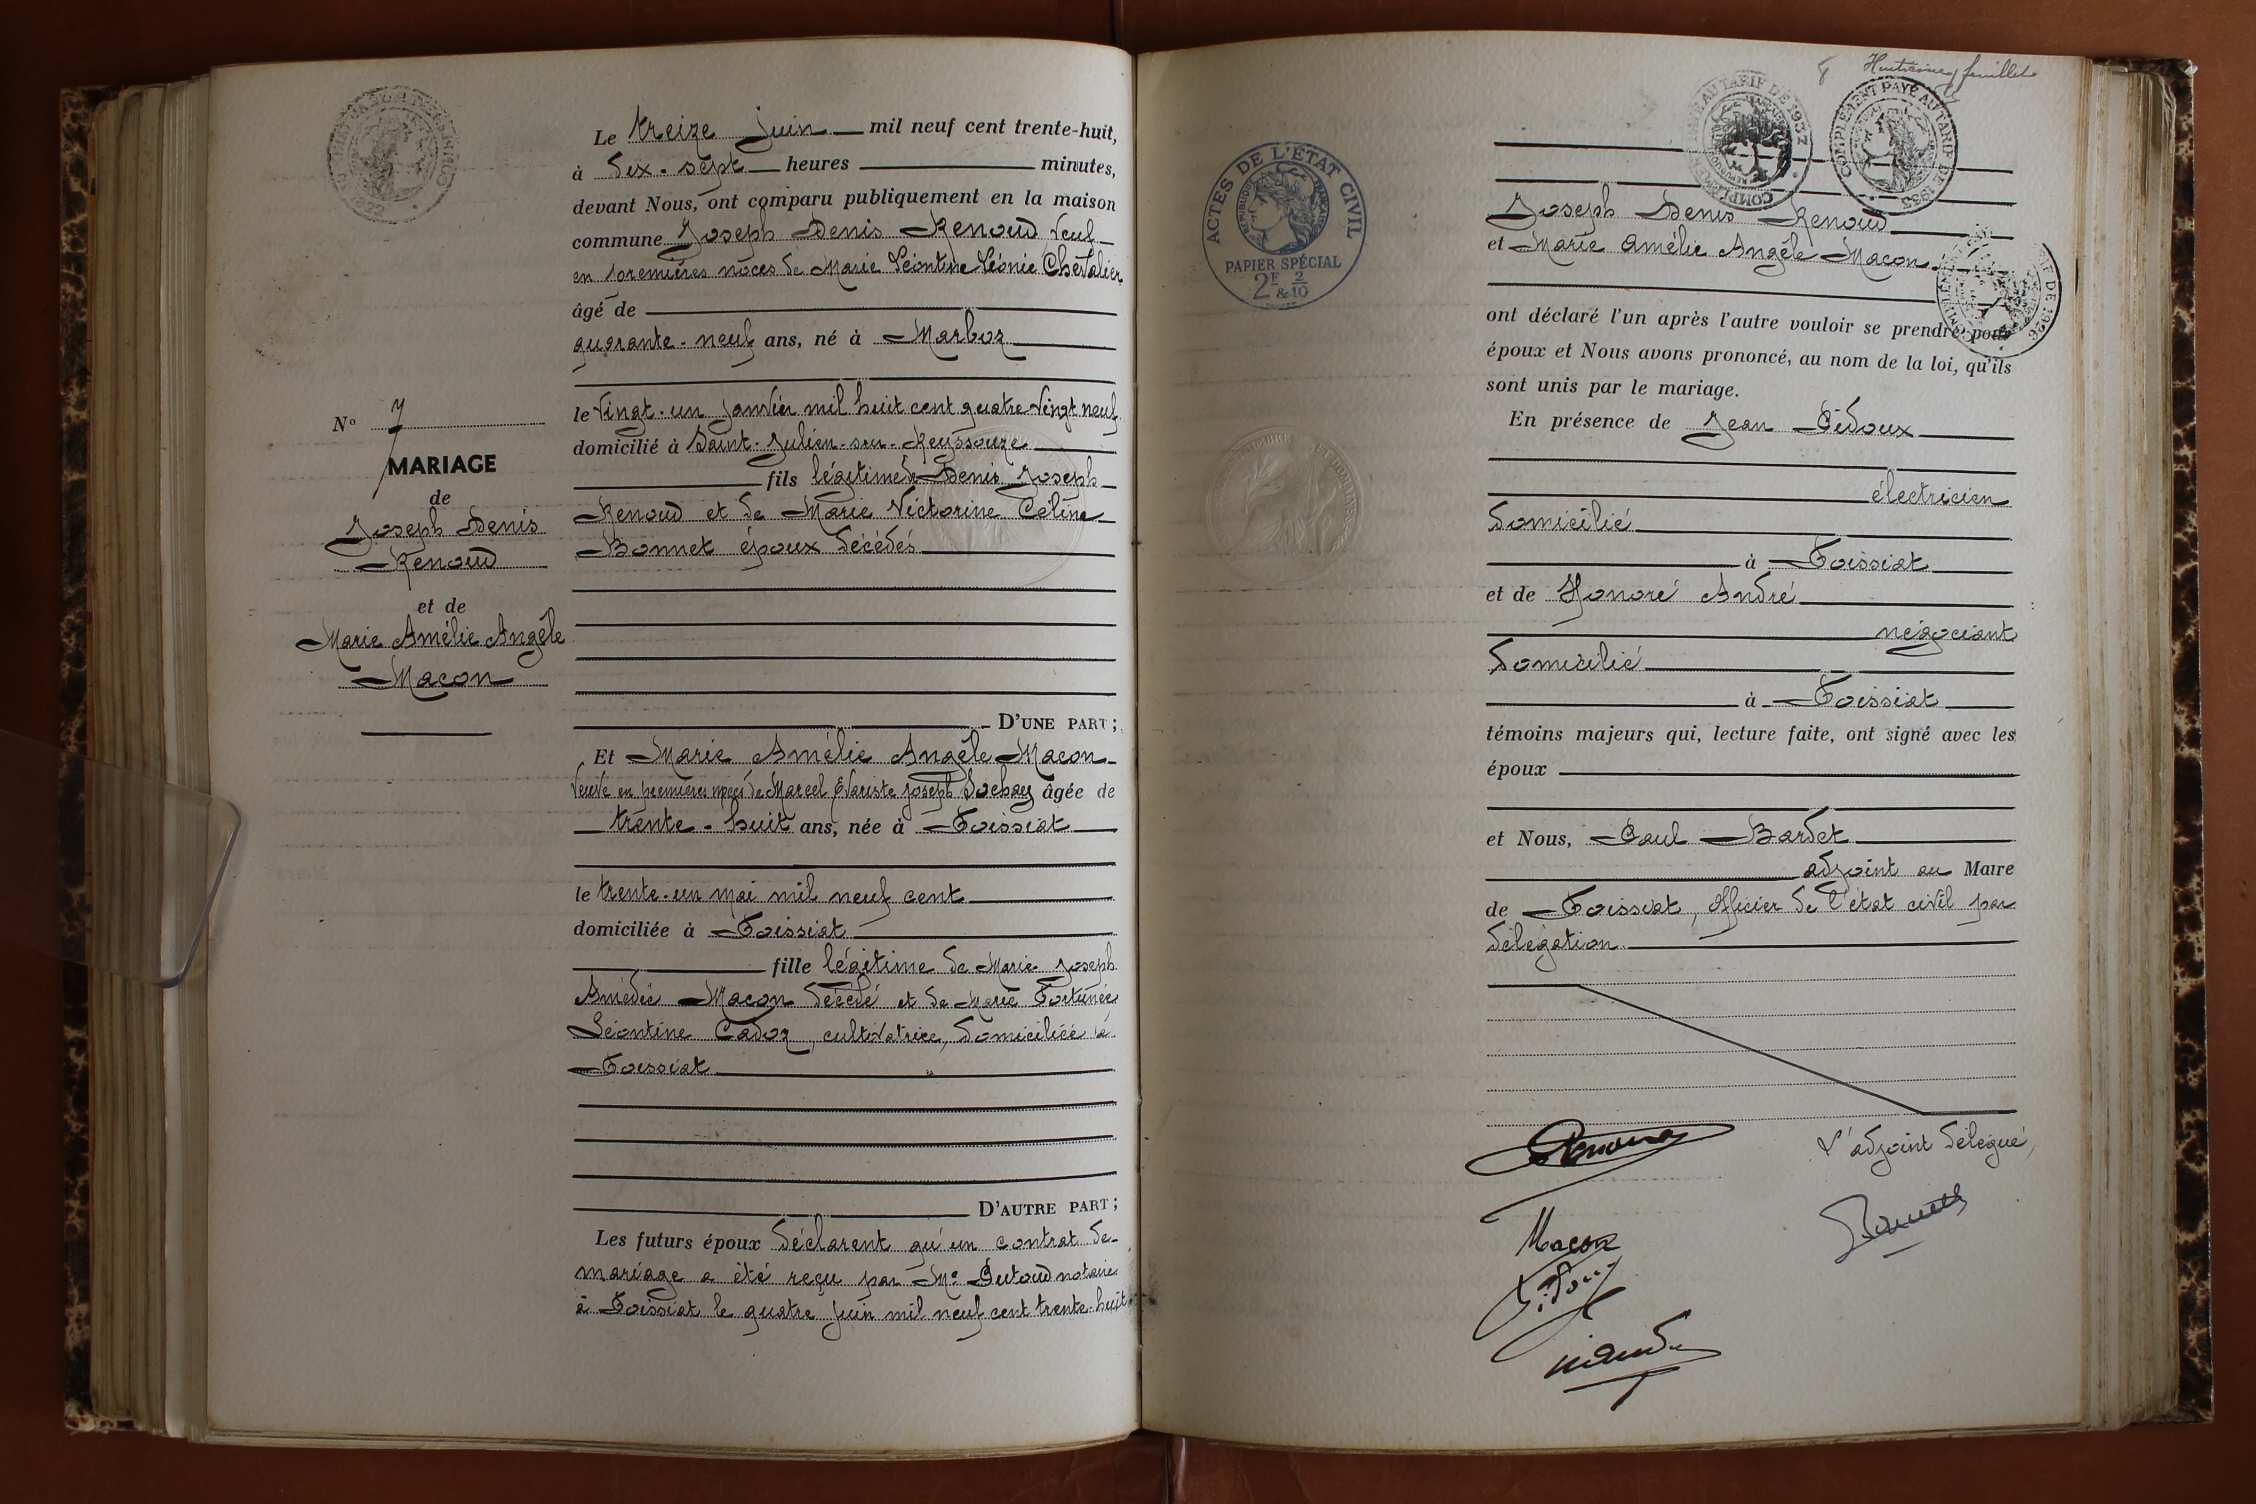 Le treize juin mil neuf cent trente-huit,
à dix-sept heures minutes,
devant Nous, ont comparu publiquement en la maison
commune Joseph Denis Renoud veuf
en premières noces de Marie Léontine Léonie Chevalier
âgé de
quarante-neuf ans, né à Marboz
le vingt-un janvier mil huit cent quatre vingt neuf
domicilié à Saint-Julien-sur-Reyssouze
fils légitime de Denis Joseph
Renoud et de Marie Victorine Céline
Bonnet époux décédés
N° 7
MARIAGE
de
Joseph Denis
Renoud
et de
Marie Amélie Angèle
Macon
D'UNE PART;
Et Marie Amélie Angèle Macon
veuve en premières noces de Marcel Evariste Joseph Sochay âgée de
trente-huit ans, née à Foissiat
le trente-un mai mil neuf cent
domiciliée à Foissiat
fille légitime de Marie Joseph
Amédée Macon décédé et de Marie Fortunée
Léontine Cadoz, cultivatrice, domiciliée à
Foissiat
D'AUTRE PART;
Les futurs époux déclarent qu'un contrat de
mariage a été reçu par Me Putoud notaire
à Foissiat le quatre juin mil neuf cent trente-huit
8 Huitième feuillet
COMPLÉMENT PAYÉ AU TARIF DE 1937
COMPLÉMENT PAYÉ AU TARIF DE 1935
ACTES DE L'ÉTAT CIVIL
RÉPUBLIQUE FRANÇAISE
PAPIER SPÉCIAL
2F & 2/10
Joseph Denis Renoud
et Marie Amélie Angèle Macon
ont déclaré l'un après l'autre vouloir se prendre pour
époux et Nous avons prononcé, au nom de la loi, qu'ils
sont unis par le mariage.
En présence de Jean Pidoux
électricien
domicilié
à Foissiat
et de Honoré André
négociant
domicilié
à Foissiat
témoins majeurs qui, lecture faite, ont signé avec les
époux
et Nous, Paul Bardet
adjoint au Maire
de Foissiat, officier de l'état civil par
délégation.
Renoud
L'adjoint délégué,
Macon